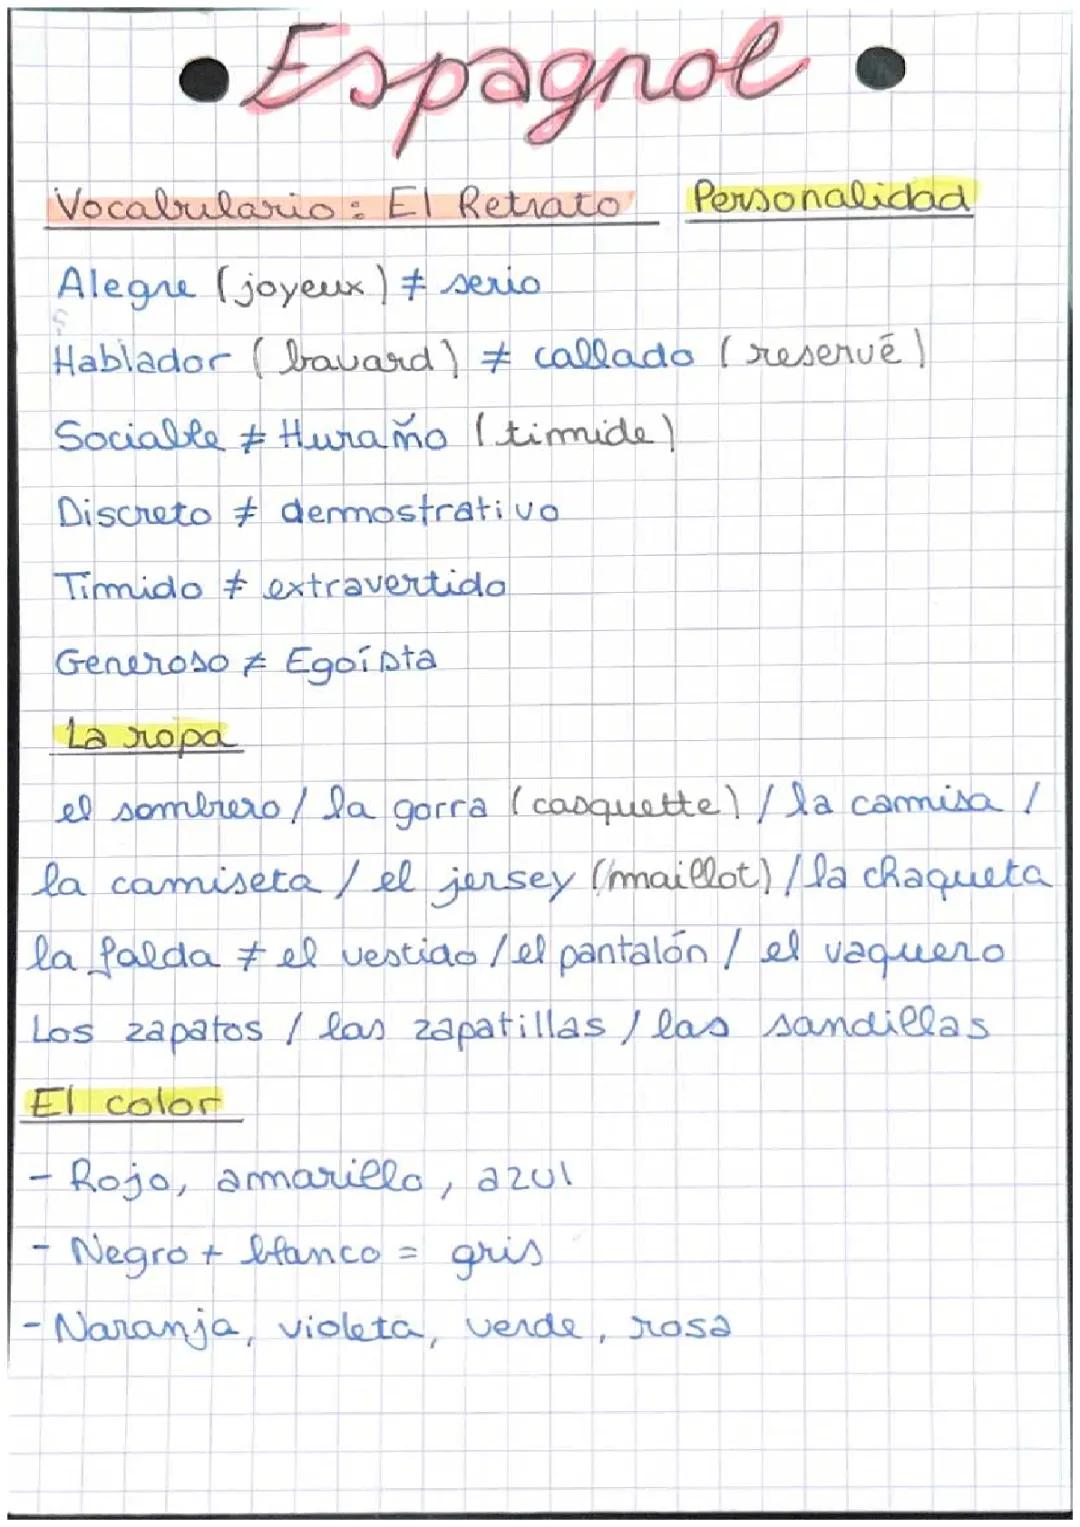 • Espagnol •
Vocabulario : El Retrato Personalidad
Alegre (joyeux) ≠ serio
Hablador (bavard) ≠ callado (reservé)
Sociable ≠ Huraño (timide)
Discreto ≠ demostrativo
Timido ≠ extravertido
Generoso ≠ Egoísta
La ropa
el sombrero / la gorra (casquette) / la camisa /
la camiseta / el jersey (maillot) / la chaqueta
la falda ≠ el vestido / el pantalón / el vaquero
Los zapatos / las zapatillas / las sandillas
El color
- Rojo, amarillo, azul
- Negro + blanco = gris
- Naranja, violeta, verde, rosa